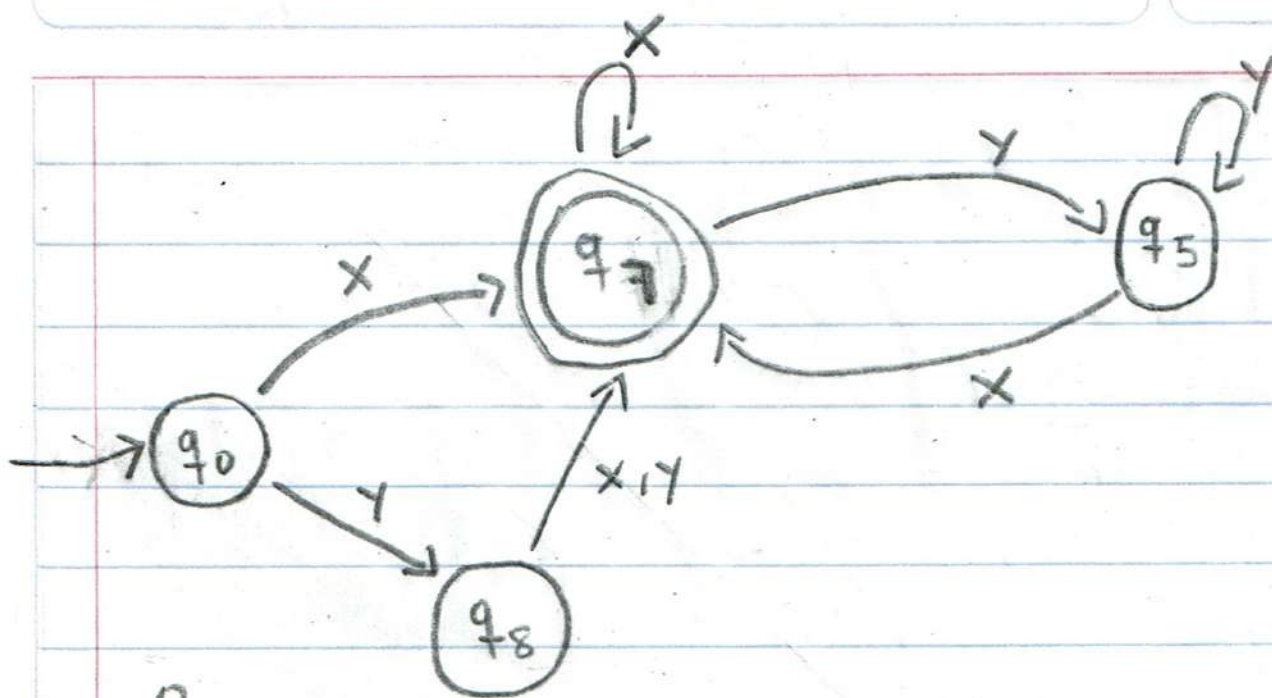 X
Y
Y
q7
q5
X
X
q0
Y
X,Y
q8